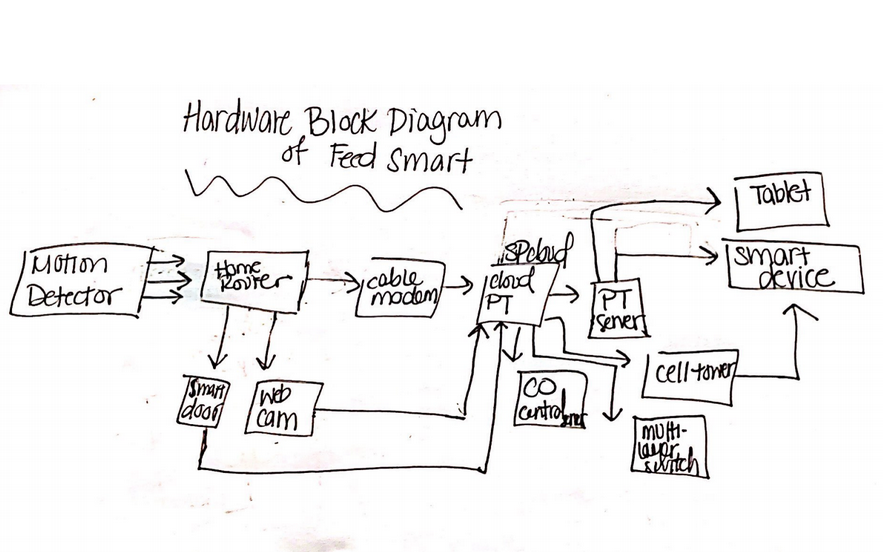 Hardware Block Diagram
of Feed Smart
Motion
Detector
Home
Router
cable
modem
cloud
PT
PT
server
Tablet
smart
device
smart
door
Web
cam
CO
central
cell tower
multi-
layer
switch